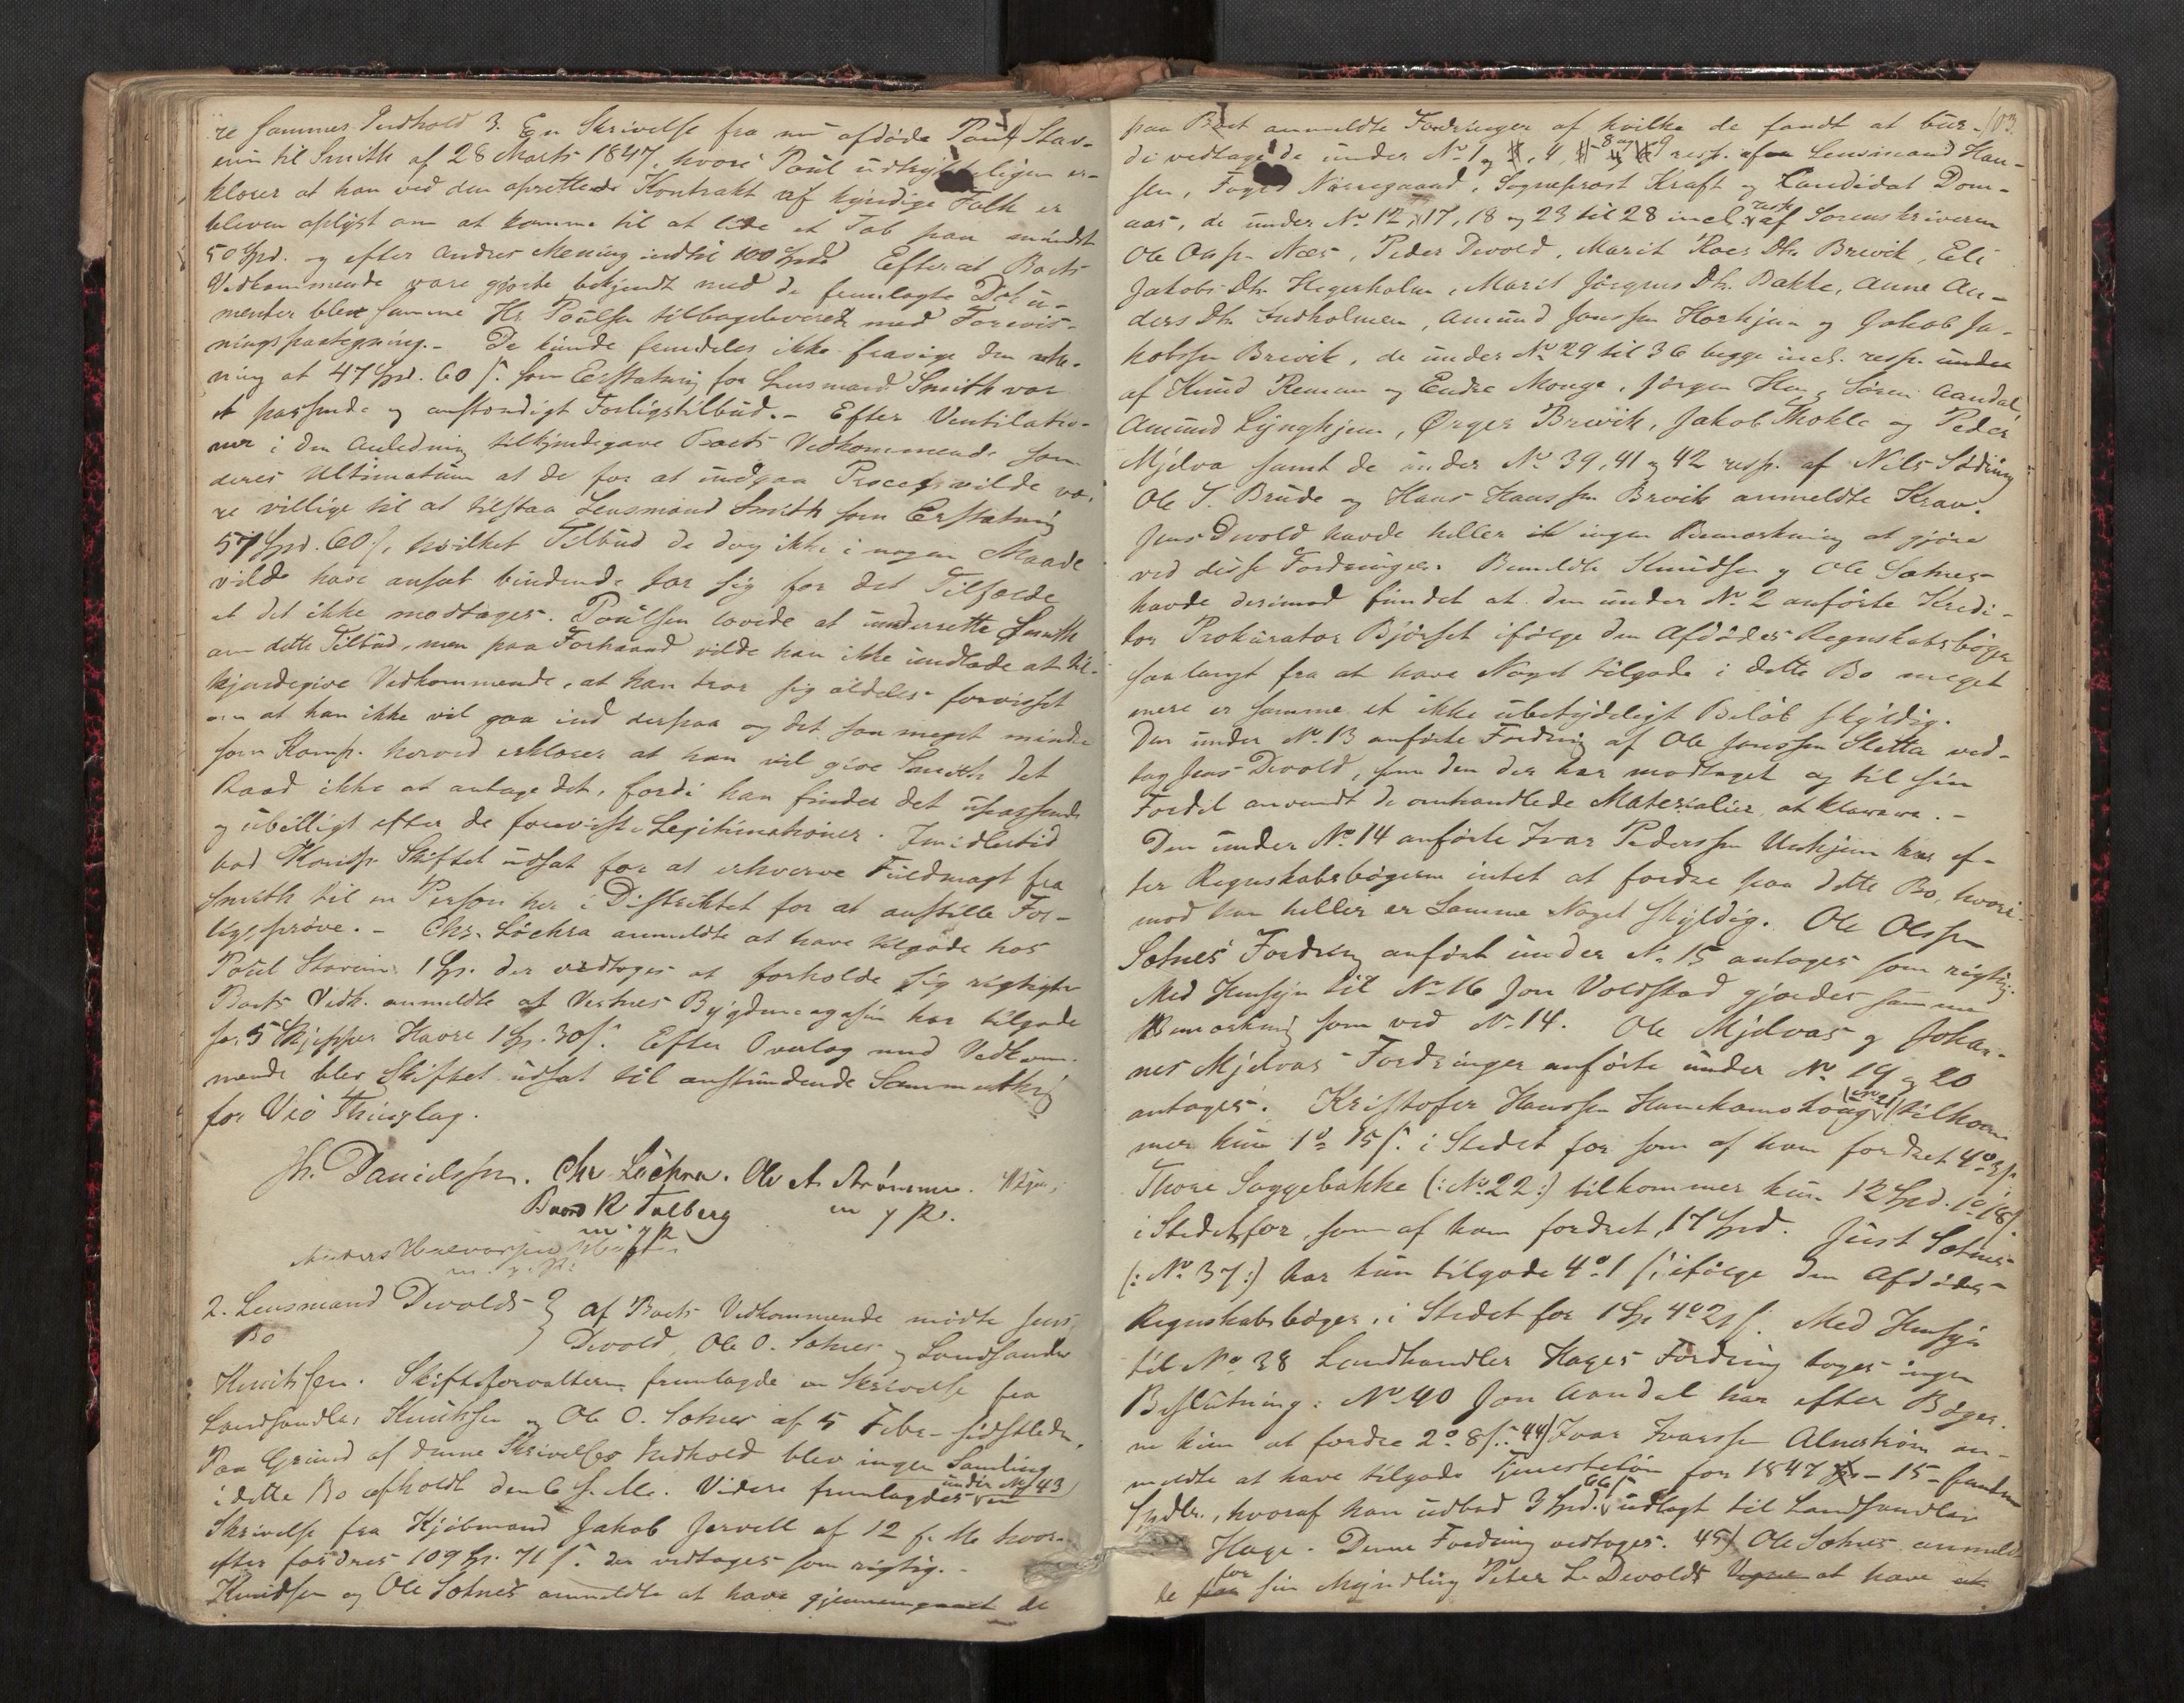 re sammes Indhold 3. En Skrivelse fra nu afdöde Poul Stav-
ein til Smith af 28 Marts 1847, hvori Poul udtrykkeligen er-
klærer at han ved den oprettede Kontrakt af kyndige Folk er
bleven oplyst om at komme til at lide et Tab paa mindst
50 Spd. og efter Andres Mening indtil 100 Spd. Efterat Boets
Vedkommende vare gjorte bekjendt med de fremlagte Doku-
menter blev samme Hr. Poulsen tilbageleveret med Forevis-
ningspaategning. - De kunde fremdeles ikke fravige den
ning at 47 Spd. 60 s. som Erstatning for Lensmand Smith var
et passende og anstændigt Forligstilbud. - Efter Ventilatio-
ner i den Anledning tilkjendegave Boets Vedkommende som
deres Ultimatum at de for at undgaa Proces vilde væ-
re villige til at tilstaa Lensmand Smith som Erstatning
57 Spd. 60 s., hvilket Tilbud de dog ikke i nogen Maade
vilde have anset bindende for sig for det Tilfælde
at det ikke modtages. Poulsen lovede at underrette Smith
om dette Tilbud, men paa Forhaand vilde han ikke undlade at til-
kjendegive Vedkommende, at han troer sig aldeles forvisset
om at han ikke vil gaa ind derpaa og det saa meget mindre
som Komp. herved erklærer at han vil give Smith det
Raad ikke at antage det, fordi han finder det upassende
og ubilligt efter de foreviste Legitimationer. Imidlertid
bad Komp. Skiftet udsat for at erhverve Fuldmagt fra
Smith til en Person her i Distriktet for at anstille For-
ligsprøve. - Chr. Löchra anmeldte at have tilgode hos
Poul Stavein 1 Sp. der vedtoges at forholde sig rigtigt.
Boets Vedk. anmeldte at Vestnes Bygdemagasin har tilgode
for 5 Skjepper Havre 1 Sp. 30 s. Efter Overlæg med Vedkom-
mende blev Skiftet udsat til anstundende Sommerthing
for Veö Thinglag.
Th. Danielssen. Chr Löchra. Ole A. Strömme.
Baard R Talberg m p R.
m p R
m. p. R.
2. Lensmand Devolds } af Boets Vedkommende mödte Jens
Bo } Devold, Ole O. Sotnes og Landhandler
Knutssen. Skifteforvalteren fremlagde en Skrivelse fra
Landhandler Knutssen og Ole O. Sotnes af 5 Febr. sidstleden.
Paa Grund af denne Skrivelses Indhold blev ingen Samling
i dette Bo afholdt den 6 s. M. Videre fremlagdes under No 43 en
Skrivelse fra Kjöbmand Jakob Jervell af 12 s. M. hvor-
efter fordres 109 Sp. 71 s. der vedtoges som rigtig. -
Knudssen og Ole Sotnes anmeldte at have gjennemgaaet de
103.
paa Boet anmeldte Fordringer af hvilke de fandt at bur-
de vedtages de under No 1, 4, 8 og 9 resp. af Lensmand Han-
sen, Foged Nörregaard, Sogneprost Kraft og Candidat Dom-
aas, de under No 12, 17, 18 og 23 til 28 incl. resp. af Sorenskriveren
Ole Næs, Peder Devold, Marit Roes Dtr. Brevik, Eli
Jakobs Dtr. Hegerholm, Marit Jörgens Dtr. Bakke, Anne An-
ders Dtr Indholmen, Amund Jonssen Horhjem og Jakob Ja-
kobssen Brevik, de under No 29 til 36 begge incl. resp. under
af Knud Reman og Endre Monge, Jörgen Hen, Sören Aandal,
Amund Lynghjem, Ørger Brevik, Jakob Thokle og Peder
Mjelva samt de under No 39, 41 og 42 resp. af Nils Söding
Ole T. Brude og Hans Hanssen Brevik anmeldte Krav.
Jens Devold havde heller ingen Bemærkning at gjöre
ved disse Fordringer. Bemeldte Knudssen og Ole Sotnes
havde derimod fundet at den under No 2 anförte Kredi-
tor Prokurator Bjórset ifölge den Afdödes Regnskabsböger
saalangt fra at have Noget tilgode i dette Bo meget
mere er samme et ikke ubetydeligt Belöb skyldig.
Den under No 13 anförte Fordring af Ole Jonssen Sletta ved-
tog Jens Devold, som den der har modtaget og til sin
Fordel anvendt de omhandlede Materialier, at klarere. -
Den under No 14 anförte Ivar Pederssen Unhjem har ef-
ter Regnskabsbögerne intet at fordre paa dette Bo, hvori-
mod han heller er Samme Noget skyldig. Ole Olssen
Sotnes Fordring anfört under No 15 antages som rigtig.
Med Hensyn til No 16 Jon Voldstad gjordes samme
Bemærkning som ved No 14. Ole Mjelvas og Johan-
nes Mjelvas Fordringer anförte under No 19 og 20
antages. Kristofer Hanssen (No 21) tilkom-
mer kun 1 o 15 s. i Stedet for som af ham fordret 4 o 3 s.
Thore Soggebakke (: No 22 :) tilkommer kun 12 Spd. 1 o 18 s.
i Stedet for, som af ham fordret, 17 Spd. Just Sotnes
(: No 37 :) har kun tilgode 4 o 1 s. ifölge den Afdödes
Regnskabsböger, i Stedet for 1 Sp 4 o 21 s. Med Hensyn
til No 38 Landhandler Hages Fordring toges ingen
Beslutning: No 40 Jon Aandal har efter Böger-
ne kun at fordre 2 o 8 s. 44) Ivar Ivarssen Alnestrøm an-
meldte at have tilgode Tjenestelön for 1847 - 15 - femten
Spdlr., hvoraf han udbad 3 Spd. 66 s udlagt til Landhandler
Hage. Denne Fordring vedtoges. 45) Ole Sotnes anmeld-
te for sin Myndling Peter L. Devoldt at have